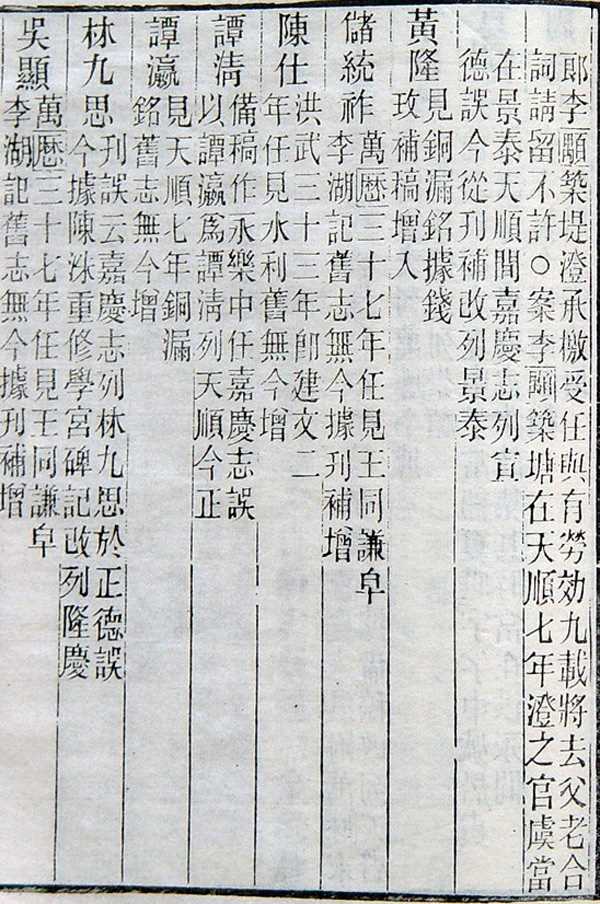 郎李顒築堤澄承檄受任與有勞効九載將去父老合
詞請留不許○案李顒築塘在天順七年澄之官虞當
在景泰天順間嘉慶志列宣
德誤今從刊補改列景泰
黃隆
見銅漏銘據錢
玫補稿增入
儲統祚
萬曆三十七年任見王同謙阜
李湖記舊志無今據刊補增
陳仕
洪武三十三年卽建文二
年任見水利舊無今增
譚清
備稿作永樂中任嘉慶志誤
以譚瀛爲譚清列天順今正
譚瀛
見天順七年銅漏
銘舊志無今增
林九思
刊誤云嘉慶志列林九思於正德誤
今據陳洙重修學宮碑記改列隆慶
吳顯
萬曆三十七年任見王同謙阜
李湖記舊志無今據刊補增